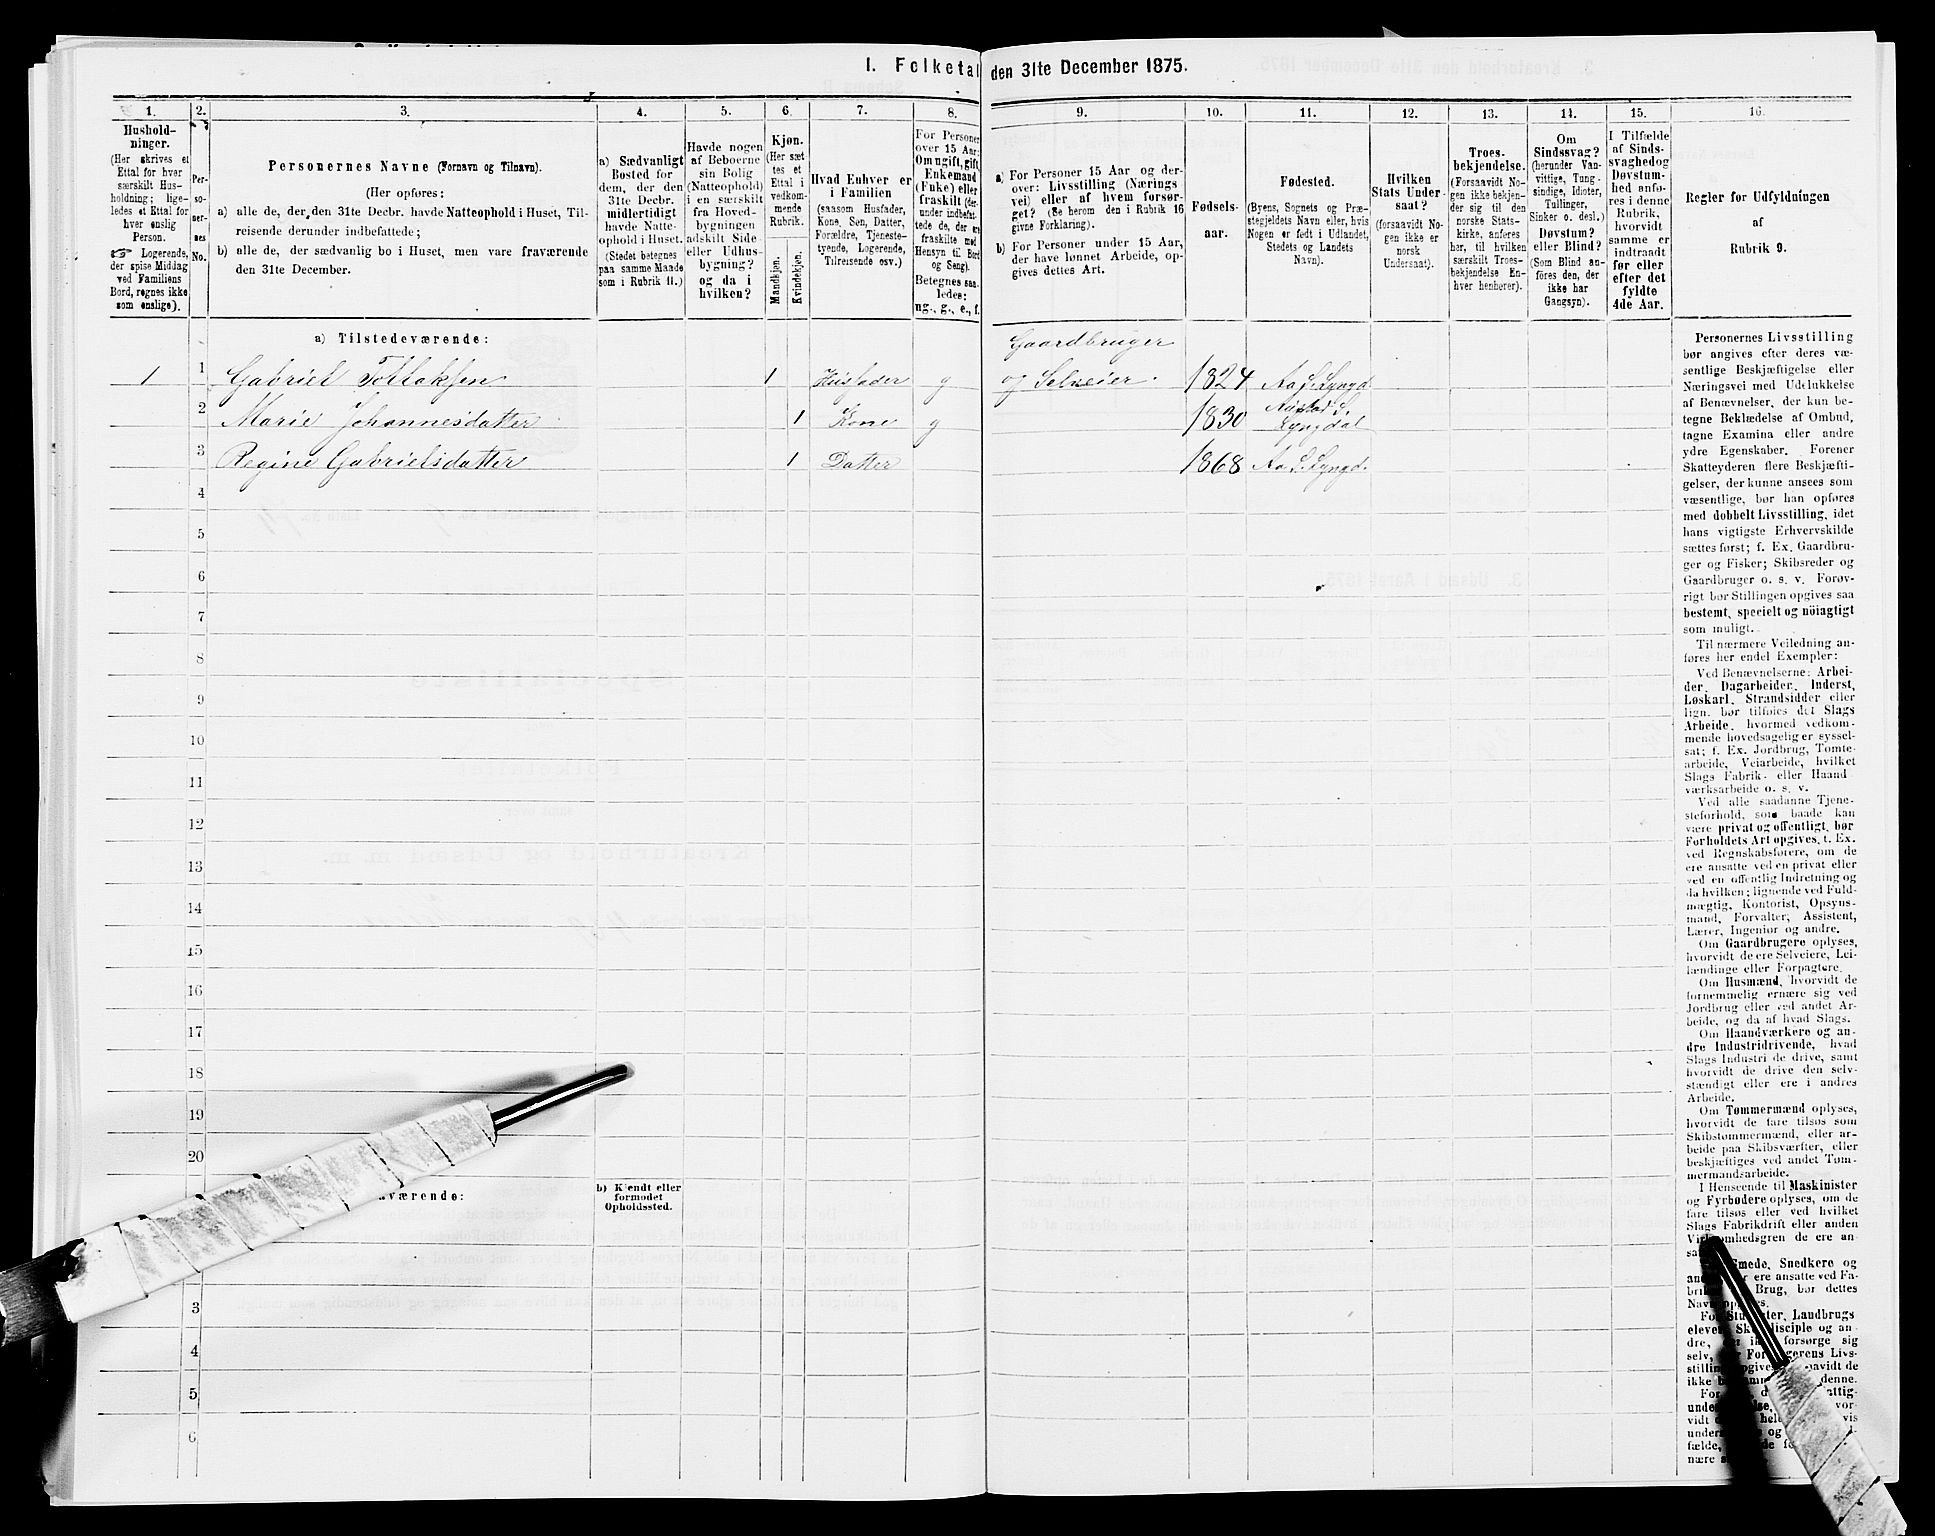 I. Folketal den 31te December 1875.
1.
Hushold-
ninger.
(Her skrives et
Ettal for hver
særskilt Hus-
holdning; lige-
ledes et Ettal for
hver enslig
Person.
Logerende,
der spise Middag
ved Familiens
Bord, regnes ikke
som enslige).
2.
Per-
so-
ner-
nes
No.
3.
Personernes Navne (Fornavn og Tilnavn).
(Her opføres:
a) alle de, der den 31te Decbr. havde Natteophold i Huset, Til-
reisende derunder indbefattede;
b) alle de, der sædvanlig bo i Huset, men vare fraværende
den 31te December.
4.
a) Sædvanligt
Bosted for
dem, der den
31te Decbr.
midlertidigt
havde Natte-
ophold i Huset.
(Stedet betegnes
paa samme Maade
som i Rubrik 11.)
5.
Havde nogen
af Beboerne
sin Bolig
(Natteophold)
i en særskilt
fra Hoved-
bygningen
adskilt Side-
eller Udhus-
bygning?
og da i
hvilken?
6.
Kjøn.
(Her sæt
tes et
Ettal i
vedkom-
mende
Rubrik.
Mandkjøn.
Kvindekjøn.
7.
Hvad Enhver er
i Familien
(saasom Husfader,
Kone, Søn, Datter,
Forældre, Tjeneste-
tyende, Logerende,
Tilreisende osv.)
8.
For Personer
over 15 Aar:
Om ugift, gift,
Enkemand
(Fuke) eller
fraskilt (der-
under indbefat-
tede de, der ere
fraskilte med
Hensyn til Bord
og Seng).
Betegnes saa-
ledes:
ug., g., e., f.
9.
a) For Personer 15 Aar og der-
over: Livsstilling (Nærings
vei) eller af hvem forsør-
get? (Se herom den i Rubrik 16
givne Forklaring).
b) For Personer under 15 Aar,
der have lønnet Arbeide, op-
gives dettes Art.
10.
Fødsels-
aar.
11.
Fødested.
(Byens, Sognets og Præ-
stegjeldets Navn eller, hvis
Nogen er født i Udlandet,
Stedets og Landets
Navn).
12.
Hvilken
Stats Under-
saat?
(forsaavidt No-
gen ikke er
norsk
Undersaat).
13.
Troes-
bekjendelse.
(Forsaavidt No-
gen ikke bekjen-
der sig til den
norske Stats-
kirke, anføres
her, til hvilken
særskilt Troes-
bekjendelse En-
hver henhører).
14.
Om
Sindssvag?
(herunder Van-
vittige, Tung-
sindige, Idioter,
Tullinger,
Sinker o. desl.)
Døvstum?
eller Blind?
(Som Blind an-
føres den, der
ikke har
Gangsyn).
15.
I Tilfælde
af Sinds-
svaghedog
Døvstum-
hed anfø-
res i denne
Rubrik,
hvorvidt
samme er
indtraadt
før eller
efter det
fyldte
4de Aar.
16.
Regler for Udfyldningen
af
Rubrik 9.
a) Tilstedeværende:
Gaardbruger
1 1 Gabriel Tollaksen 1 Husfader g og Selveier. 1824 Aa S. Lyngd
2 Marie Johannesdatter 1 Kone g 1830 Austad S. Lyngdal
3 Regine Gabrielsdatter 1 Datter 1868 Aa S. Lyngd.
4
5
6
7
8
9
10
11
12
13
14
15
16
17
18
19
20
værende:
b) Kjendt eller
formodet
Opholdssted.
3
4
5
6
Personernes Livsstilling
bør angives efter deres væ-
sentlige Beskjæftigelse eller
Næringsvei med Udelukkelse
af Benævnelser, der kun be-
tegne Beklædelse af Ombud,
tagne Examina eller andre
ydre Egenskaber. Forener
Skatteyderen flere Beskjæfti-
gelser, der kunne ansees som
væsentlige, bør han opføres
med dobbelt Livsstilling, idet
hans vigtigste Erhvervskilde
sættes først; f. Ex. Gaardbru-
ger og Fisker; Skibsreder og
Gaardbruger o. s. v. Forøv-
rigt bør Stillingen opgives saa
bestemt, specielt og nöiagtigt
som muligt.
Til nærmere Veiledning an-
føres her endel Exempler:
Ved Benævnelserne: Arbei-
der, Dagarbeider, Inderst,
Løskarl, Strandsidder eller
lign. bør tilføies det Slags
Arbeide, hvormed vedkom-
mende hovedsagelig er syssel-
sat; f. Ex. Jordbrug, Tomte-
arbeide, Veiarbeide, hvilket
Slags Fabrik- eller Haand
værksarbeide o. s. v.
Ved alle saadanne Tjene-
steforhold, som baade kan
være privat og offentligt, bør
Forholdets Art opgives, t. Ex.
ved Regnskabsførere, om de
ere ansatte ved en privat eller
ved en offentlig Indretning og
da hvilken; lignende ved Fuld-
mægtig, Kontorist, Opsyns-
mand, Forvalter, Assistent,
Lærer, Ingeniør og andre.
Om Gaardbrugere oplyses,
hvorvidt de ere Selveiere, Lei-
lændinge eller Forpagtere.
Om Husmænd, hvorvidt de
fornemmelig ernære sig ved
Jordbrug eller ved andet Ar-
beide, og da af hvad Slags.
Om Haandværkere og an-
dre Industridrivende, hvad
Slags Industri de drive, samt
hvorvidt de drive den selv-
stændigt eller ere i andres
Arbeide.
Om Tømmermænd oplyses,
hvorvidt de fare tilsøs som
Skibstømmermænd, eller ar-
beide paa Skibsværfter, eller
beskjæftiges ved andet Tøm-
mermandsarbeide.
I Henseende til Maskinister
og Fyrbødere oplyses, om de
fare tilsøs eller ved hvilket
Slags Fabrikdrift eller anden
Virksomhedsgren de ere an-
Smede, Snedkere og
ere ansatte ved Fa-
Brug, bør dettes
Landbrugs
og an-
forsørge sig
Livs-
denne.